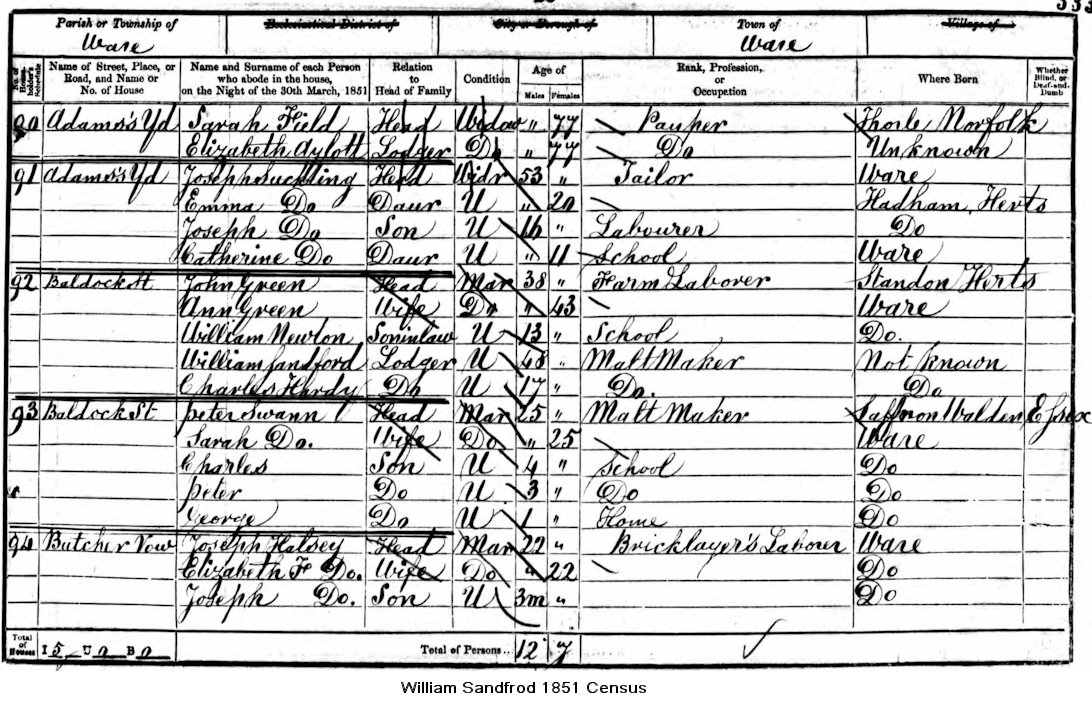 Parish or Township of Ecclesiastical District of City or Borough of Town of Village of
Ware Ware
No. of House-holder's Schedule Name of Street, Place, or Road, and Name or No. of House Name and Surname of each Person who abode in the house, on the Night of the 30th March, 1851 Relation to Head of Family Condition Age of Males Females Rank, Profession, or Occupation Where Born Whether Blind, or Deaf-and-Dumb
90 Adams's Yd Sarah Field Head Widow " 77 Pauper Norfolk
Elizabeth Aylott Lodger Do " 77 Do Unknown
91 Adams's Yd Joseph Suckling Head Widr 53 " Tailor Ware
Emma Do Daur U " 20 Hadham, Herts
Joseph Do Son U 16 " Labourer Do
Catherine Do Daur U " 11 School Ware
92 Baldock St John Green Head Mar 38 " Farm Laborer Standon Herts
Ann Green Wife Do " 43 Ware
William Newton Soninlaw U 13 " School Do.
William Sandford Lodger U 48 " Malt Maker Not known
Charles Hardy Do U 17 " Do. Do
93 Baldock St Peter Swann Head Mar 25 " Malt Maker Saffron Walden Essex
Sarah Do. Wife Do " 25 Ware
Charles Son U 4 " School Do
Peter Do U 3 " Do Do
George Do U 1 " Home Do
94 Butcher Row Joseph Halsey Head Mar 22 " Bricklayer's Laborer Ware
Elizabeth F Do. Wife Do " 22 Do
Joseph Do. Son U 3m " Do
Total of Houses I 5 U 0 B 0 Total of Persons.. 12 7
William Sandfrod 1851 Census